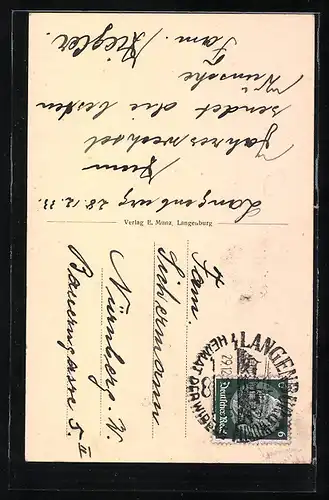 Langenburg 28.12.33.
Zum
Jahreswechsel
sendet die besten
Wünsche
Fam. Ziegler.
Verlag E. Munz, Langenburg
Fam.
Sichermann
Nürnberg. W.
Bauerngasse 5. II
LANGENBURG
HEIMAT DER WIBELE
29.12
8
Deutsches Reich
6